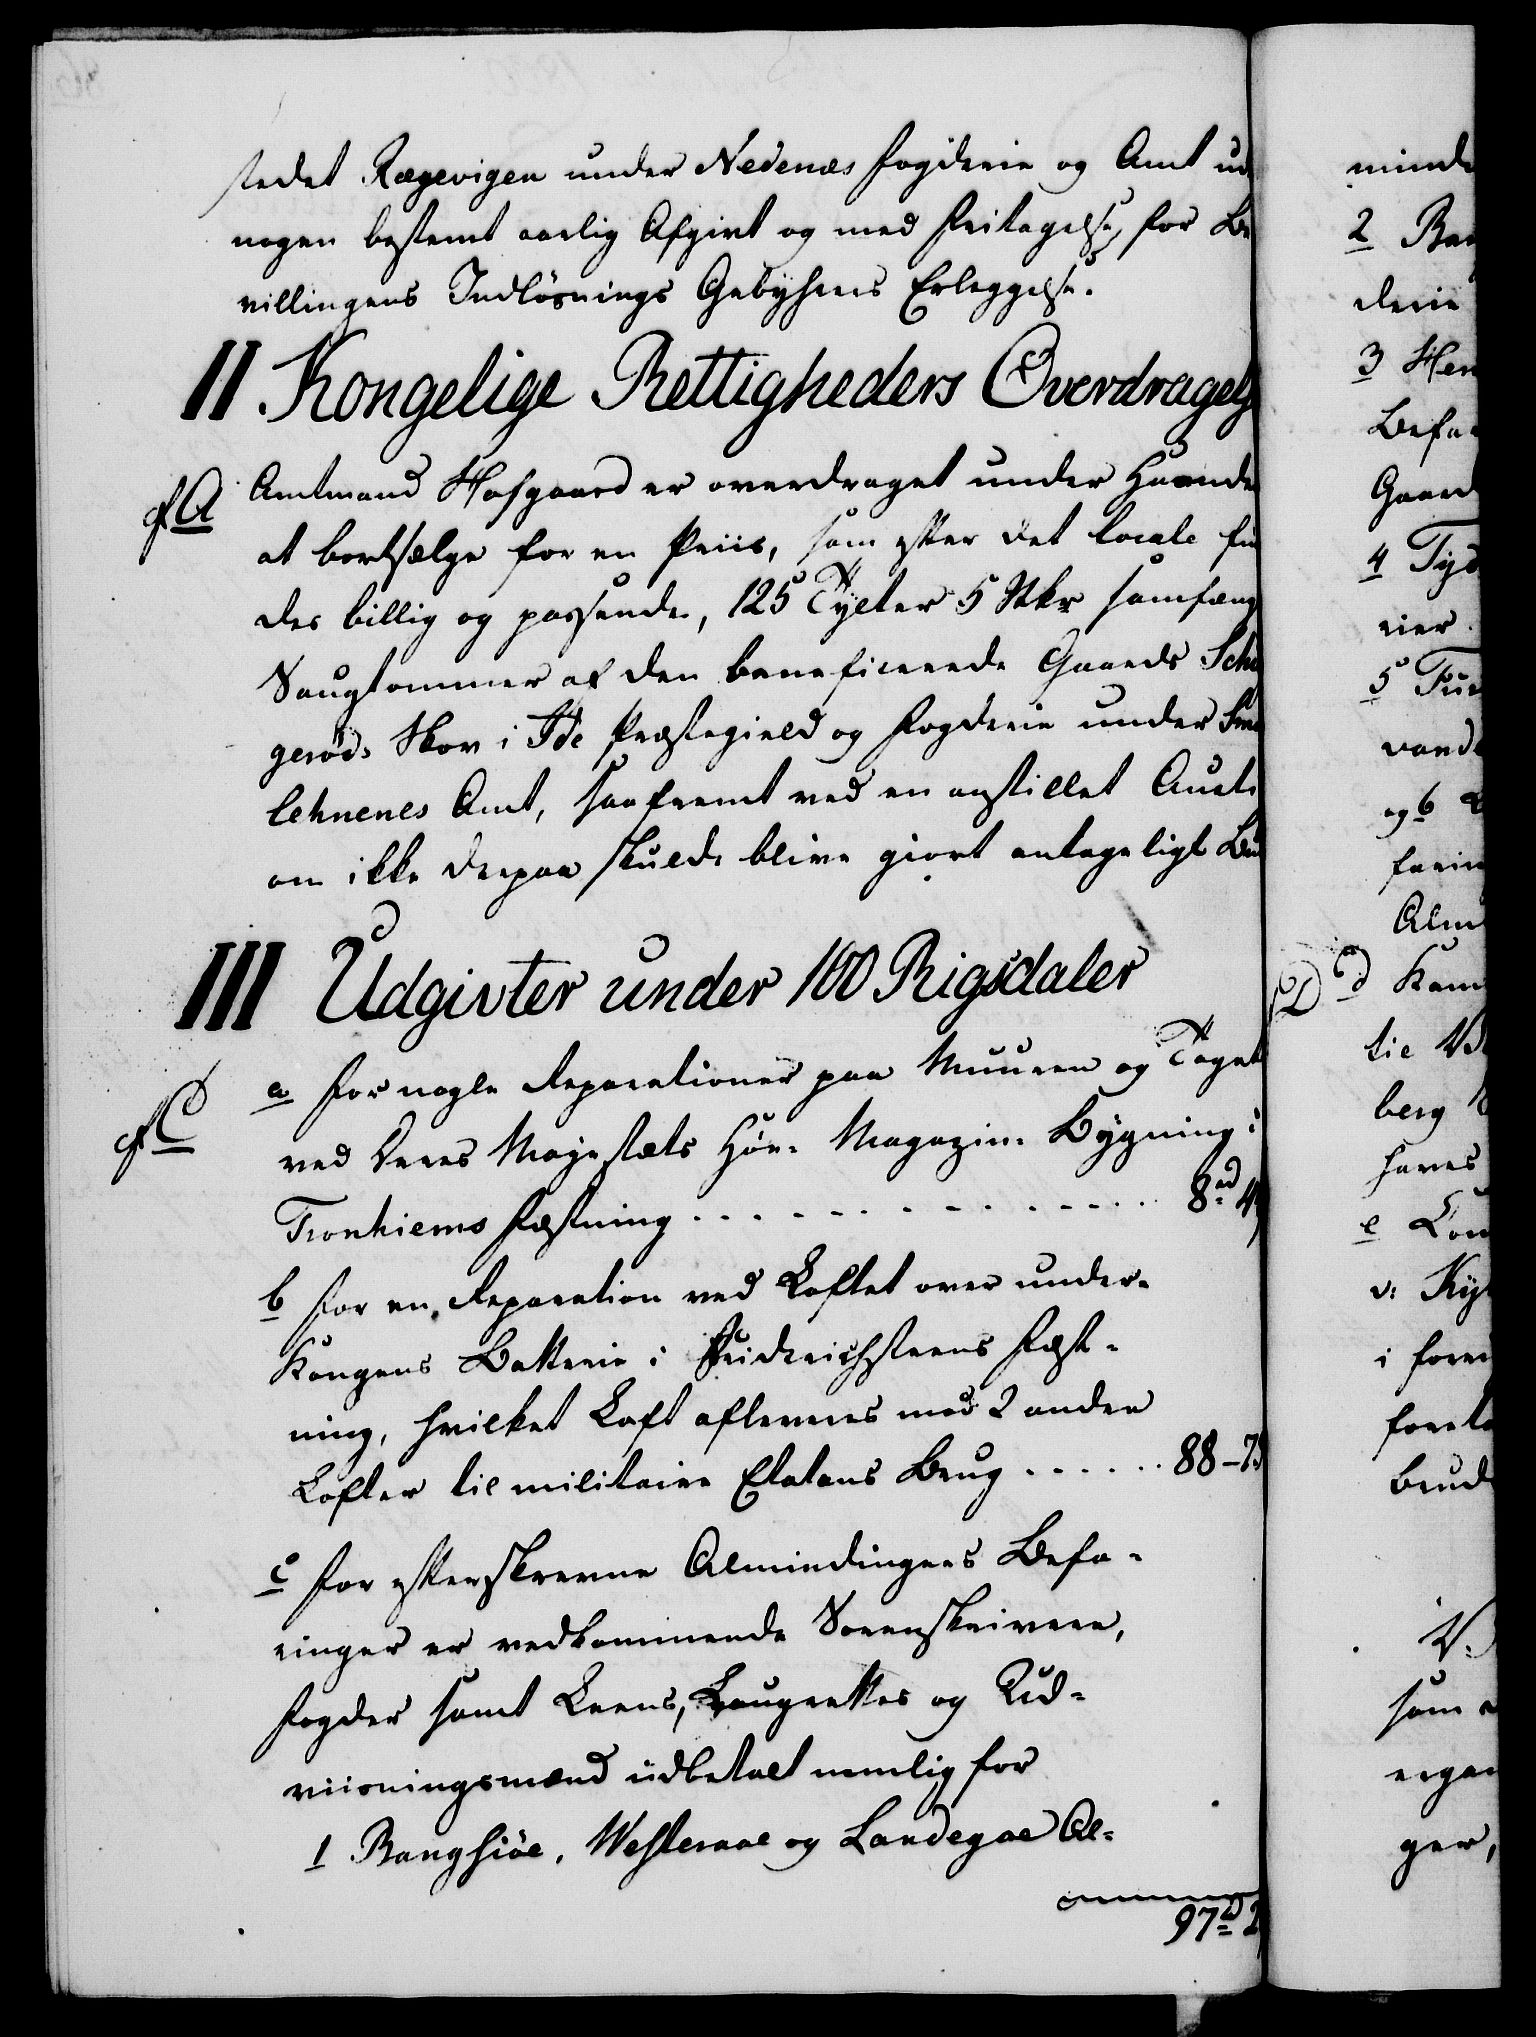 stedet Rægevigen under Nedenæs Fogderie og Amt ud
nogen bestemt aarlig Afgivt og med Fritagelse for Be
villingens Indløsnings Gebyhrers Erleggelse.
II Kongelige Rettigheders Overdragels
cf A Amtmand Hofgaard er overdraget under Haanden
at bortsælge for en Priis, som efter det locale fin
des billig og passende, 125 Tylter 5 Stkr
Saugtømmer af den beneficerede Gaards
gerøds Skov i Ide Præstegield og Fogderie under Sma
lehnenes Amt, saafremt ved en anstillet Aucti
on ikke derpaa skulde blive giort antageligt Bu
III Udgivter under 100 Rigsdaler
cf C a For nogle Reparationer paa Muuren og Taget
ved Deres Majestæts Høe- Magazin- Bygning i
Tronhiems Fæstning . . . . . . . . . . . 8 rd 4
b For en Reparation ved Loftet over under-
Kongens Batterie i Fridrichsteens Fæst-
ning, hvilket Loft afleveres med 2 andre
Lofter til militaire Etatens Brug . . . . . . 88-7
c For efterskrevne Almindingers Befa-
ringer er vedkommende Sorenskrivere,
Fogder samt Leens, Laugrettes og Ud-
viisningsmænd udbetalt nemlig for
1 Rangsiøe, Westeraae og Landegae Al-
97 rd 2
minde
2 Ran
derie
3 Her
Befa
Gaard
4 Tyd
rier
5 Fur
vand
og 6
farin
Alm
D d Kam
tie
berg
haves
e
v: Ky
i foren
foreta
brud
V.
som
ergan
ger,